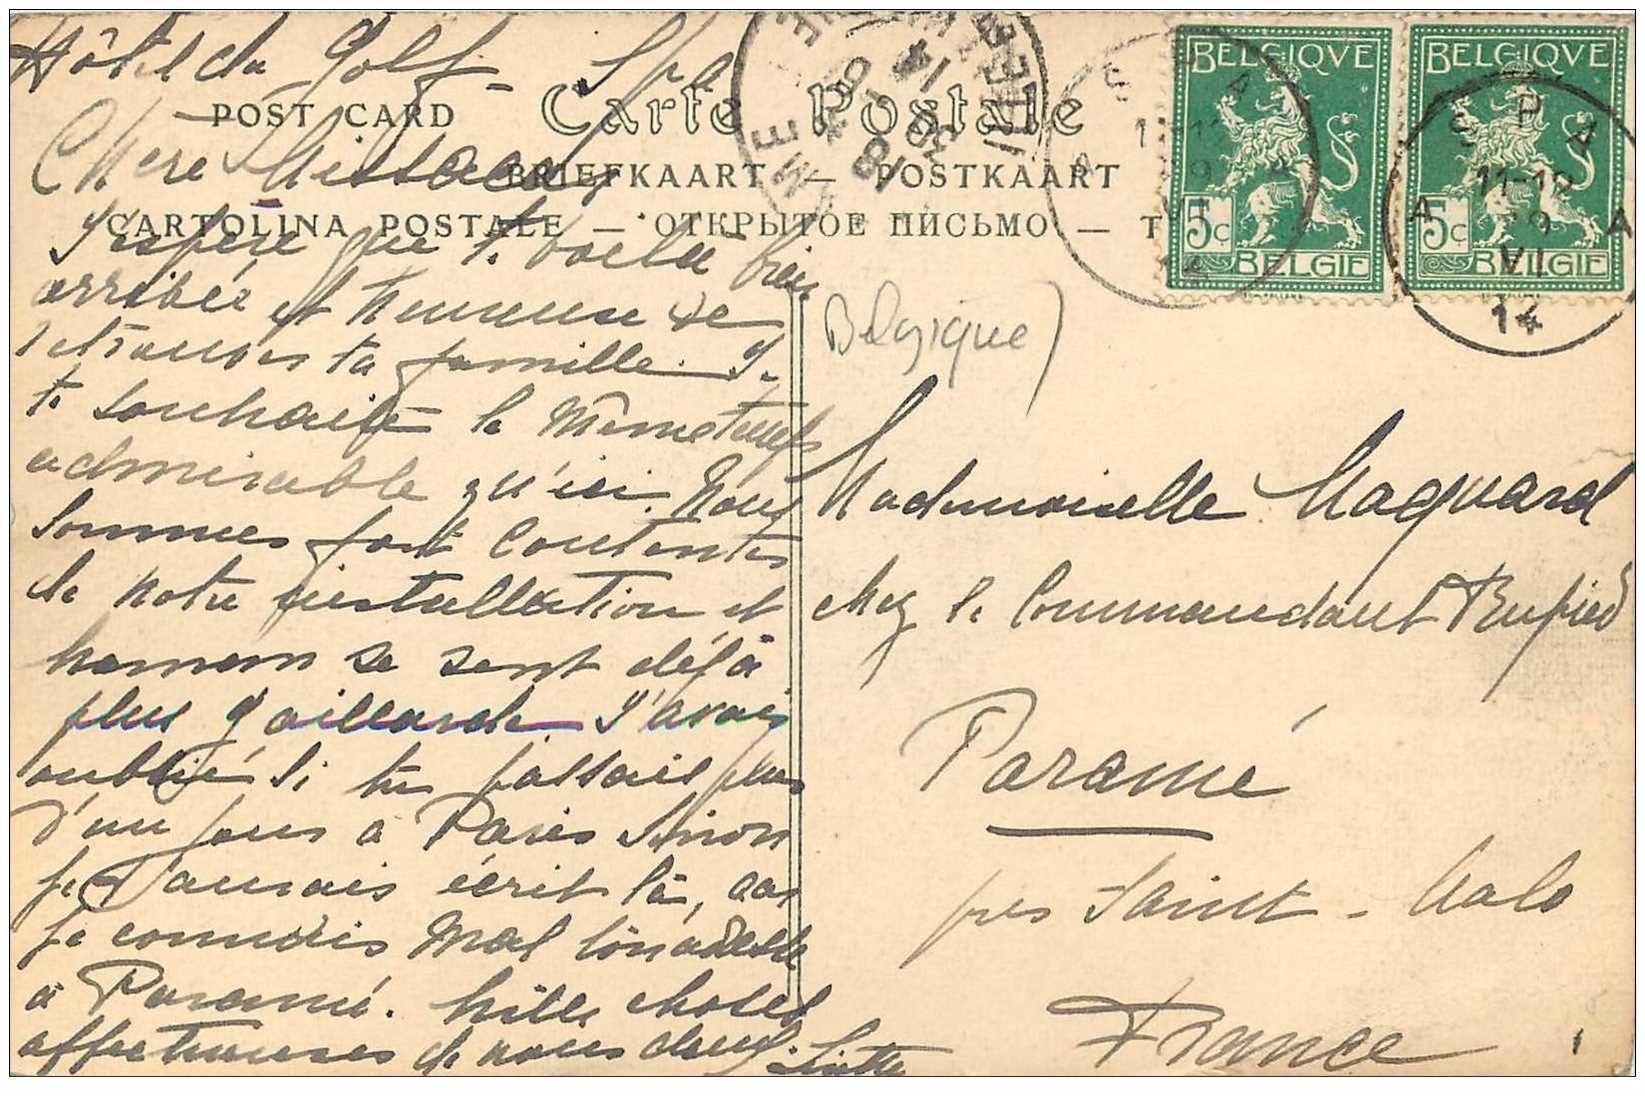 Hôtel du Golf - Spa
POST CARD Carte Postale
BRIEFKAART — POSTKAART
CARTOLINA POSTALE — ОТКРЫТОЕ ПИСЬМО — T
Chère
J'espère que te voilà bien
arrivée et heureuse de
retrouver ta famille. Je
te souhaite le même temps
admirable qu'ici. Nous
sommes fort contentes
de notre installation et
maman se sent déjà
plus gaillarde. J'avais
oublié si tu passais plus
d'un jour à Paris sinon
je t'aurais écrit là, car
je connais mal ton adresse
à Paramé. Mille choses
affectueuses de nous deux.
BELGIQVE
5c
BELGIE
BELGIQVE
5c
BELGIE
SPA
11-12
9
VI
14
SPA
11-12
9
VI
14
Belgique)
Mademoiselle Maquard
chez le Commandant
Paramé
près Saint-Malo
France